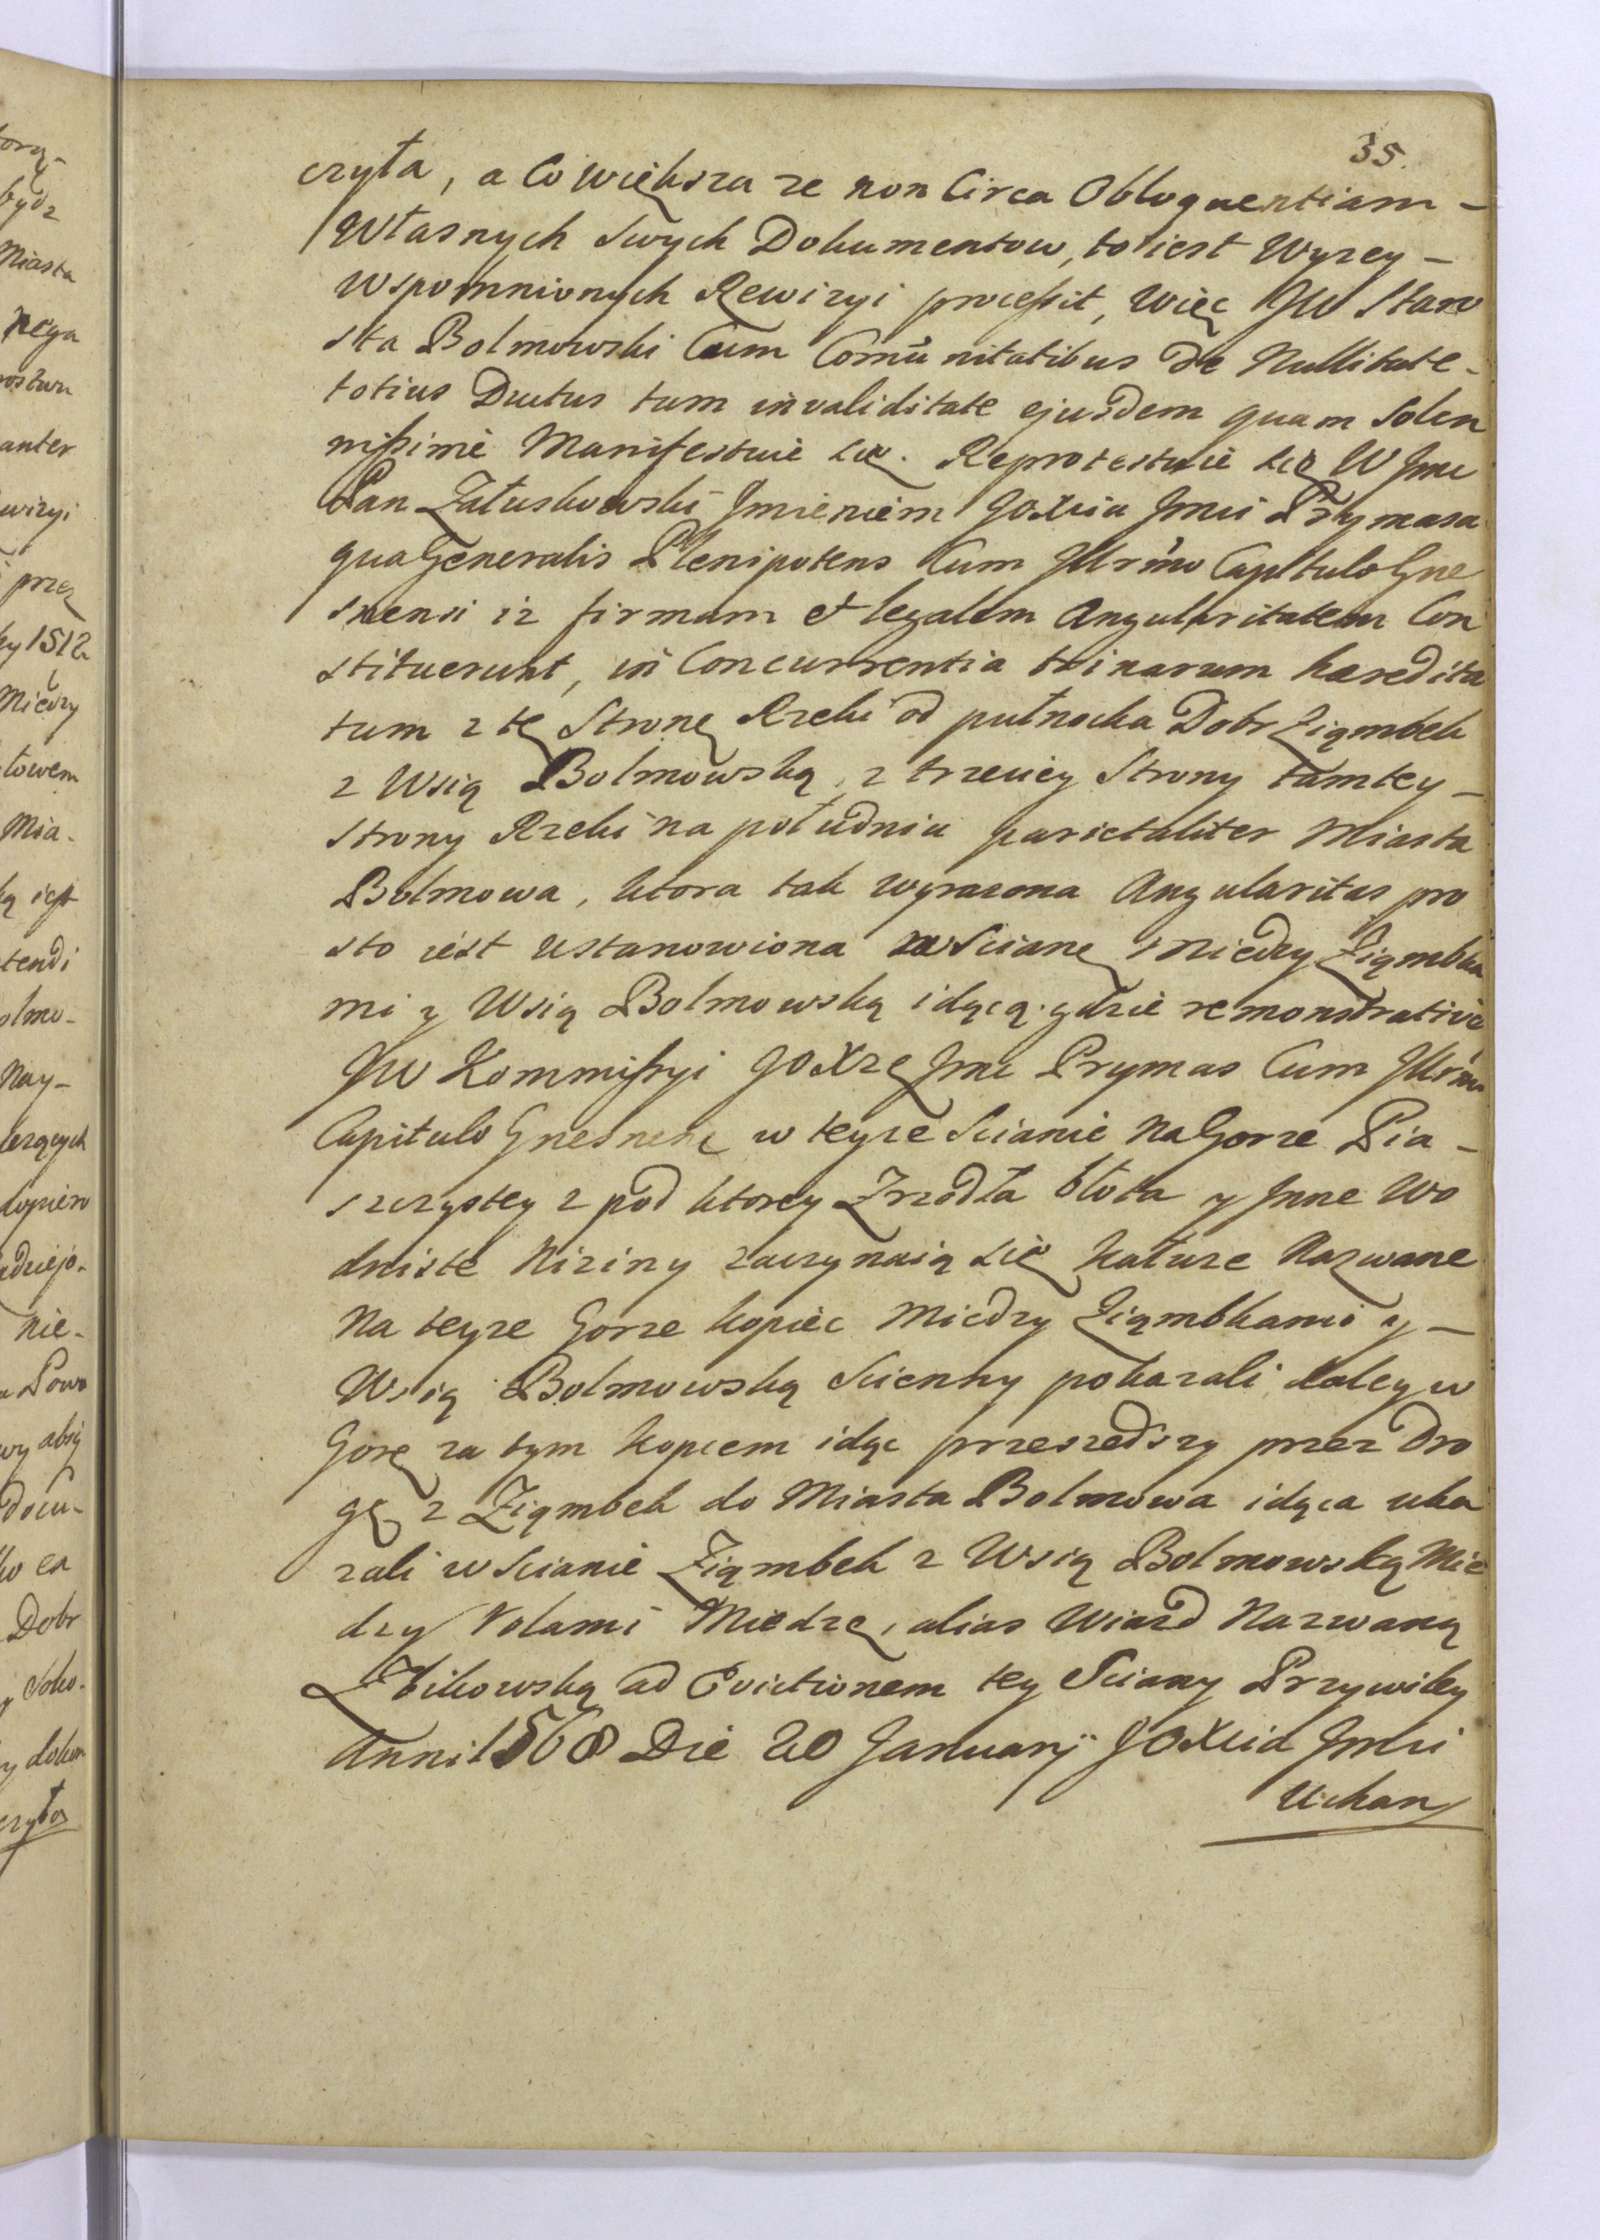 35.
czyła, a co większa ze non Circa Obloquentiam –
Własnych swych Dokumentow, to iest Wyzey –
wspomnionych Rewizyi processit, więc JW Staro
sta Bolmowski Cum Comũnitatibus de Nullitate –
totius Ductus tum invaliditate ejusdem quam Solen
nissimè Manifestuie się. Reprotestuie się W Jmc
Pan Załuskowski Jmieniem JOXcia Jmci Prymasa
qua Generalis Plenipotens Cum Jllr̃mo Capitulo Gne
snensi iz firmam et legalem Angularitatem Con
stituerunt, in Concurrentia trinarum haredita
tum z tę Stronę Rzeki od pułnocka Dobr Ziąmbek
z Wsią Bolmowską, z trzeciey Strony tamtey –
Strony Rzeki na południu parietaliter Miasta
Bolmowa, ktora tak wyrazona Angularitas pro
sto iest ustanowiona w Scianę między Ziąmbka
mi y Wsią Bolmowską idącą. gdzie remonstrativè
JW Kommissyi JOXżę Jmc Prymas Cum Jllr̃mo
Capitulo Gnesnen: w teyze Scianie na Gorze Pia –
szczystey z pod ktorey Zrzodła błota y Jnne Wo
dniste Niziny zaczynaią się kałuze Nazwane
Na teyze Gorze kopiec Miedzy Ziąmbkami y –
Wsią Bolmowską Scienny pokazali, daley w
Gorę za tym kopcem idąc przeszedszy przez Dro
gę z Ziąmbek do Miasta Bolmowa idąca uka
zali w Scianie Ziąmbek z Wsią Bolmowską Mie
dzy Rolami Miedzę, alias Wiazd Nazwaną
Zbikowską ad Evictionem tey Sciany Przywiley
Anni 1568 Die 20 Januarij JOXcia Jmci
Uchan